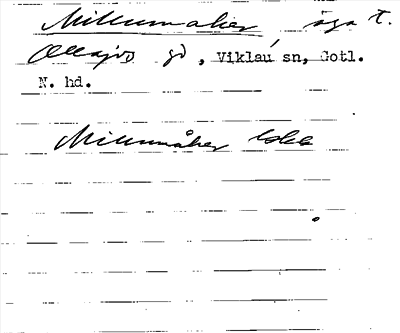 Millumaker äga t.
gd, Viklau sn, Gotl.
N. hd.
Millumåker